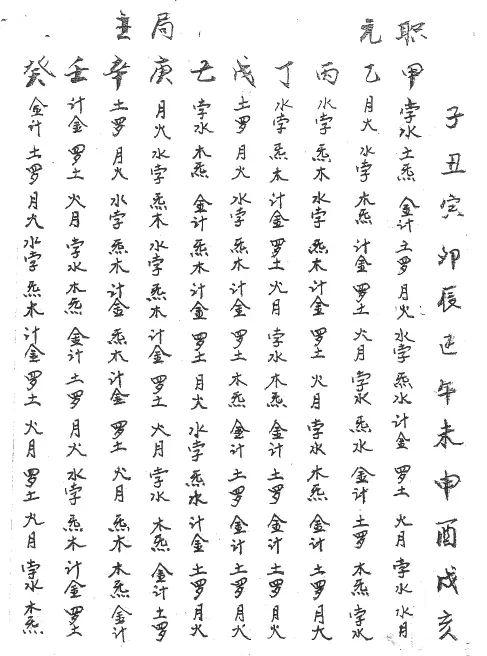 职元
局
子丑寅卯辰巳午未申酉戌亥
甲孛水土炁金计土罗月火水孛炁水计金罗土火月孛水水月
乙月火水孛木炁计金罗土火月孛水炁水金计土罗木炁孛水
丙水孛炁木水孛炁木计金罗土火月孛水木炁金计土罗月火
丁水孛炁木计金罗土火月孛水木炁金计土罗金计土罗月火
戊土罗月火水孛炁木计金罗土木炁金计土罗金计土罗月火
己孛水木炁金计炁木计金罗土月火水孛炁水计金土罗月火
庚月火水孛炁木水孛炁木计金罗土火月孛水木炁金计土罗
辛土罗月火水孛炁木计金炁木计金罗土火月炁木木炁金计
壬计金罗土火月孛水木炁金计土罗月火水孛炁木计金罗土
癸金计土罗月火水孛炁木计金罗土火月罗土火月孛水木炁